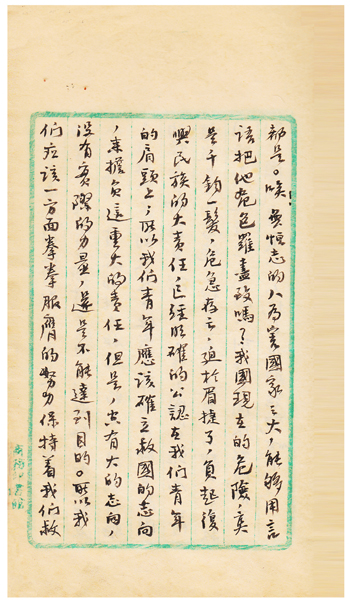 都是。唉！無恒志的人為害國家之大，能夠用言
語把他色羅盡致嗎？我國現在的危險，實
是千鈞一髮，危急存亡，迫於眉捷了，負起復
興民族的大責任，已經明確的公認在我们青年
的肩頭上；所以我们青年應該確立救國的志向
，來擔負這重大的責任，但是，只有大的志向，
没有實際的力量，還是不能達到目的。所以我
们应該一方面拳拳服膺的努力保持着我们救